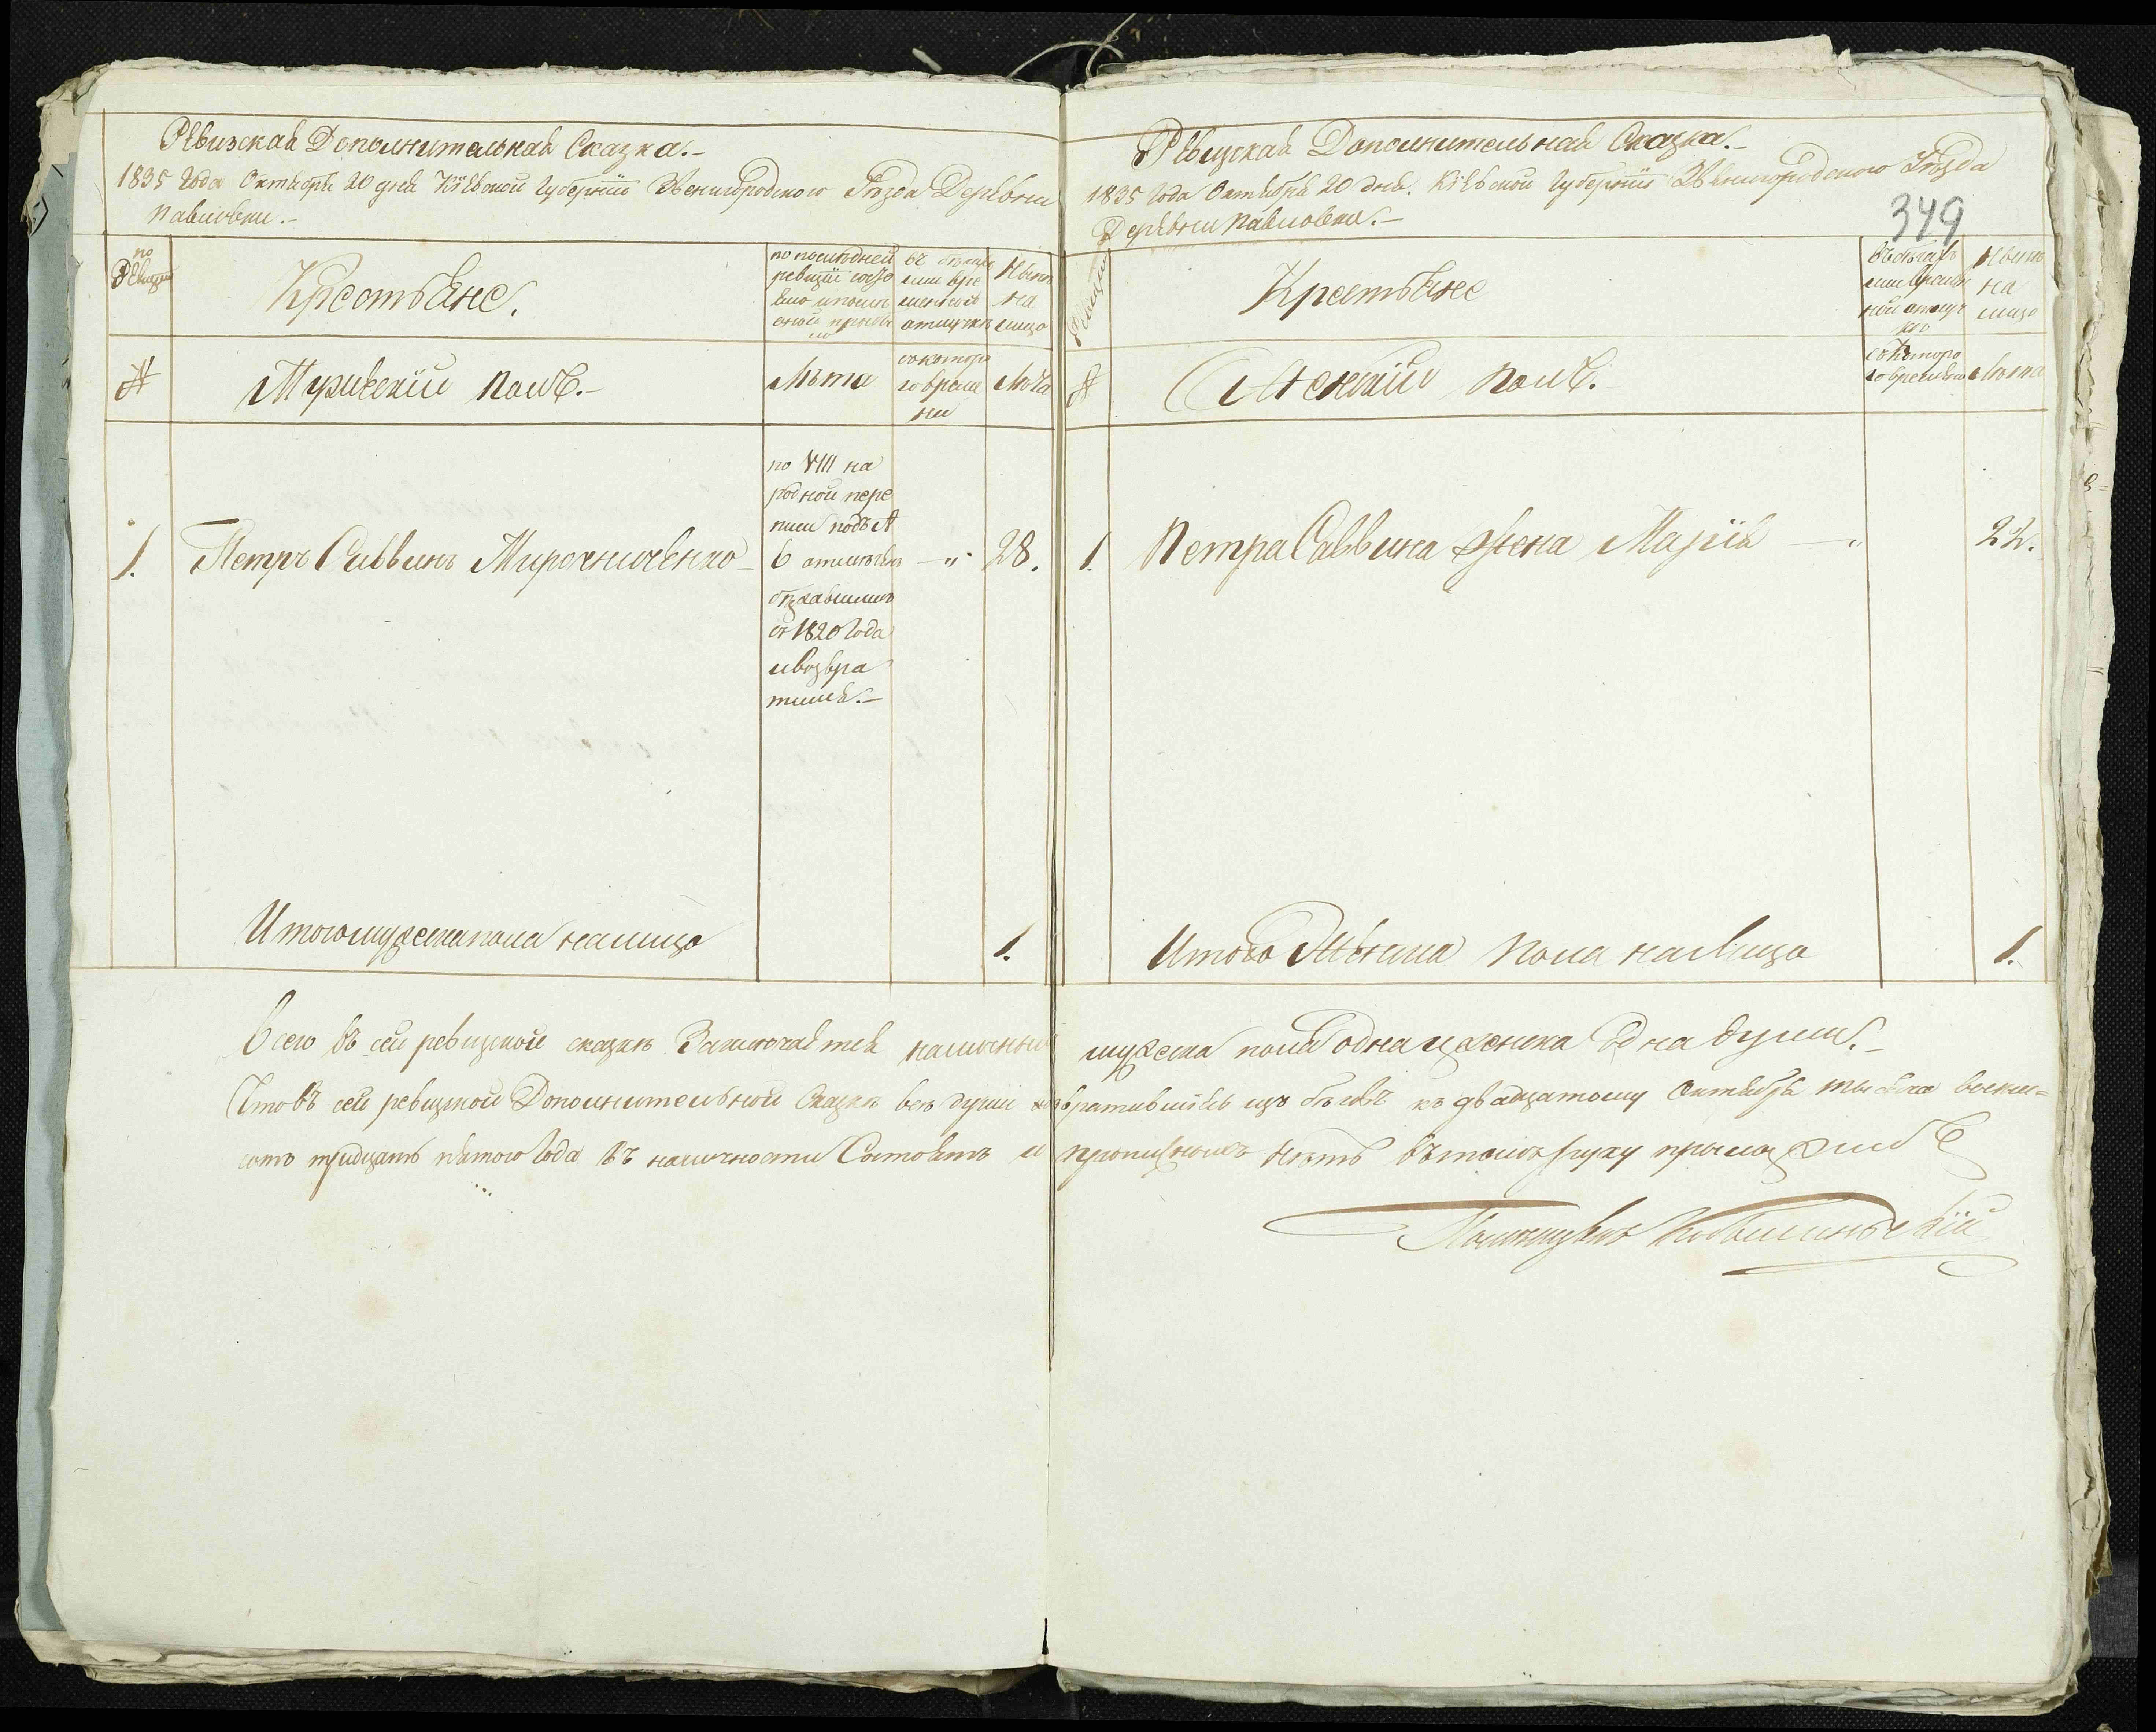 Ревизская Дополнительная Сказка.-
1835 Года Октября 20 дня Кіевской Губерніи Звенигородского Уезда Деревни
Павловки.-
по Ревизіи
Крестьяне.
по последней
ревизіи состо
яло и после
оной прибы
ло
въ бегахъ
или вре
менной
отлучке
Ныне
на
лицо
№
Мужескій полъ.-
Лета
съ которо
го време
ни
Лета
1. Петръ Саввинъ Мирошниченко - " 28.
по VIII на
родной пере
писи подъ №
6 отмечен
бежавшимъ
съ 1820 года
и возвра
тился.-
Итого мужеска пола налицо 1.
Ревизская Дополнительная Сказка.-
1835 Года Октября 20 дня. Кіевской Губерніи Звенигородского Уезда
349
Деревни Павловки.-
Ревизіи
Крестьяне
Ныне
на
лицо
№
Женскій полъ.
съ которо
го времени
Лета
1. Петра Саввина жена Марія - " 22.
Итого Женска пола на Лицо 1.
Всего въ сей ревизской сказке Заключается наличныхъ мужеска пола одна и женска одна души.-
Что въ сей ревизской Дополнительной Сказке все души возвратившіясь изъ беговъ къ двадцатому Октября тысяча восем=
сотъ тридцать пятого Года въ наличности Состоятъ и прописныхъ нетъ въ томъ руку приложилъ
Помещикъ